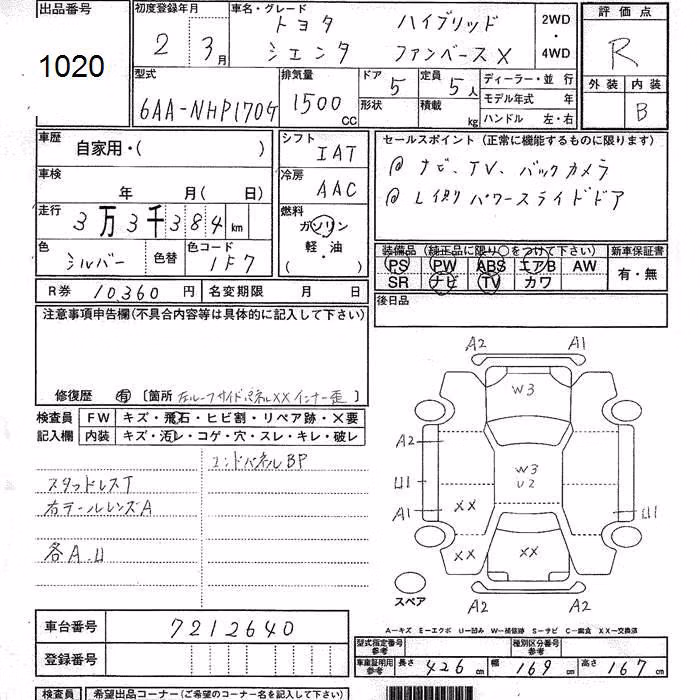 出品番号
1020
初度登録年月
2 3月
車名・グレード
トヨタ ハイブリッド
シエンタ ファンベースX
2WD
・
4WD
評価点
R
外装 内装
B
型式
6AA-NHP170G
排気量
1500 CC
ドア 5
形状
定員 5人
積載 kg
ディーラー・並行
モデル年式 年
ハンドル 左・右
車歴
自家用・( )
車検
年 月( 日)
走行
3万3千384km
色
シルバー
色替
色コード
1F7
シフト
IAT
冷房
AAC
燃料
ガソリン
軽・油
( ・ )
セールスポイント(正常に機能するものに限ります)
◎ ナビ、TV、バックカメラ
◎ L(例) パワースライドドア
装備品(純正品に限り○をつけて下さい)
PS PW ABS エアB AW
SR ナビ TV カワ
新車保証書
有・無
後日品
R券 10360円
名変期限 月 日
注意事項申告欄(不具合内容等は具体的に記入して下さい)
修復歴 有 [箇所 左ルーフサイドパネルXX インナー歪 ]
検査員
記入欄
FW キズ・飛石・ヒビ割・リペア跡・×要
内装 キズ・汚レ・コゲ・穴・スレ・キレ・破レ
エンドパネルBP
スタッドレスT
右テールレンズA
各A.U
A2 A1
W3
A2
W3
U2
U1
A1
XX
U1
XX
XX
スペア
A2 A2
A-キズ E-エクボ U-凹み W-補修跡 S-サビ C-腐食 XX-交換済
車台番号 7212640
登録番号
型式指定番号
参考
種別区分番号
参考
車庫証明用
参考
長さ 426cm 幅 169cm 高さ 167cm
検査員 希望出品コーナー(ご希望のコーナー名を記入下さい)